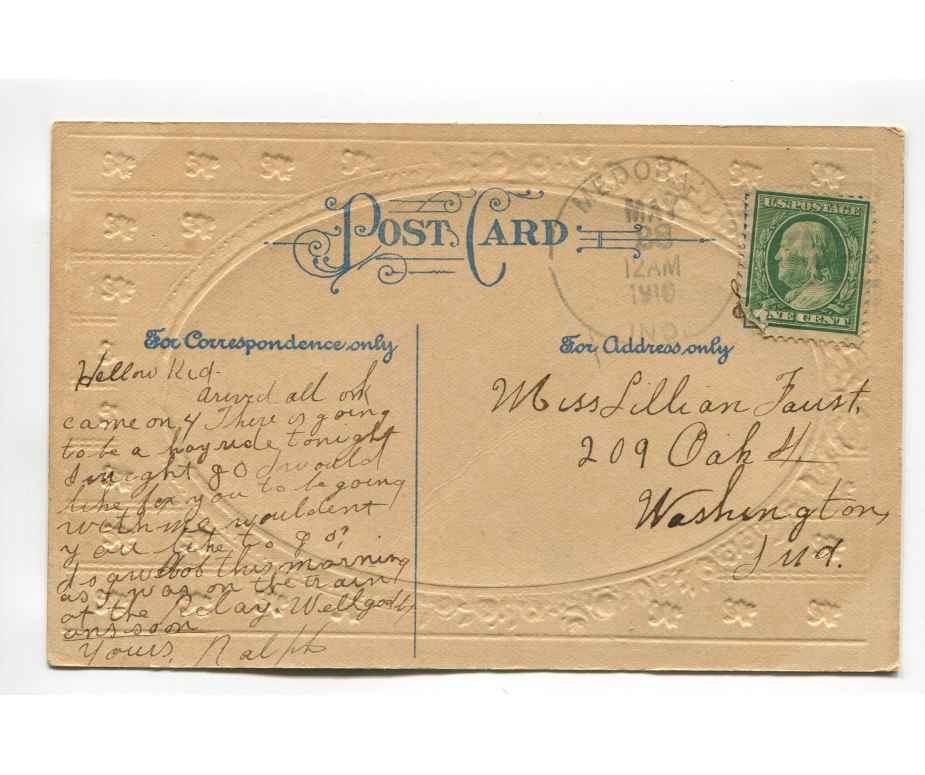 POST CARD
MEDORA
MAY
12AM
1910
IND.
U.S. POSTAGE
ONE CENT
For Correspondence only
For Address only
Hellow Kid.
arived all ok
came on 4 There is going
to be a hay ride tonight
I might go I would
like for you to be going
with me wouldent
you like to go?
I saw Bob this morning
as I was on the train
at the Relay. Well godby
ans soon
Yours, Ralph
Miss Lillian Faust.
209 Oak St
Washington,
Ind.